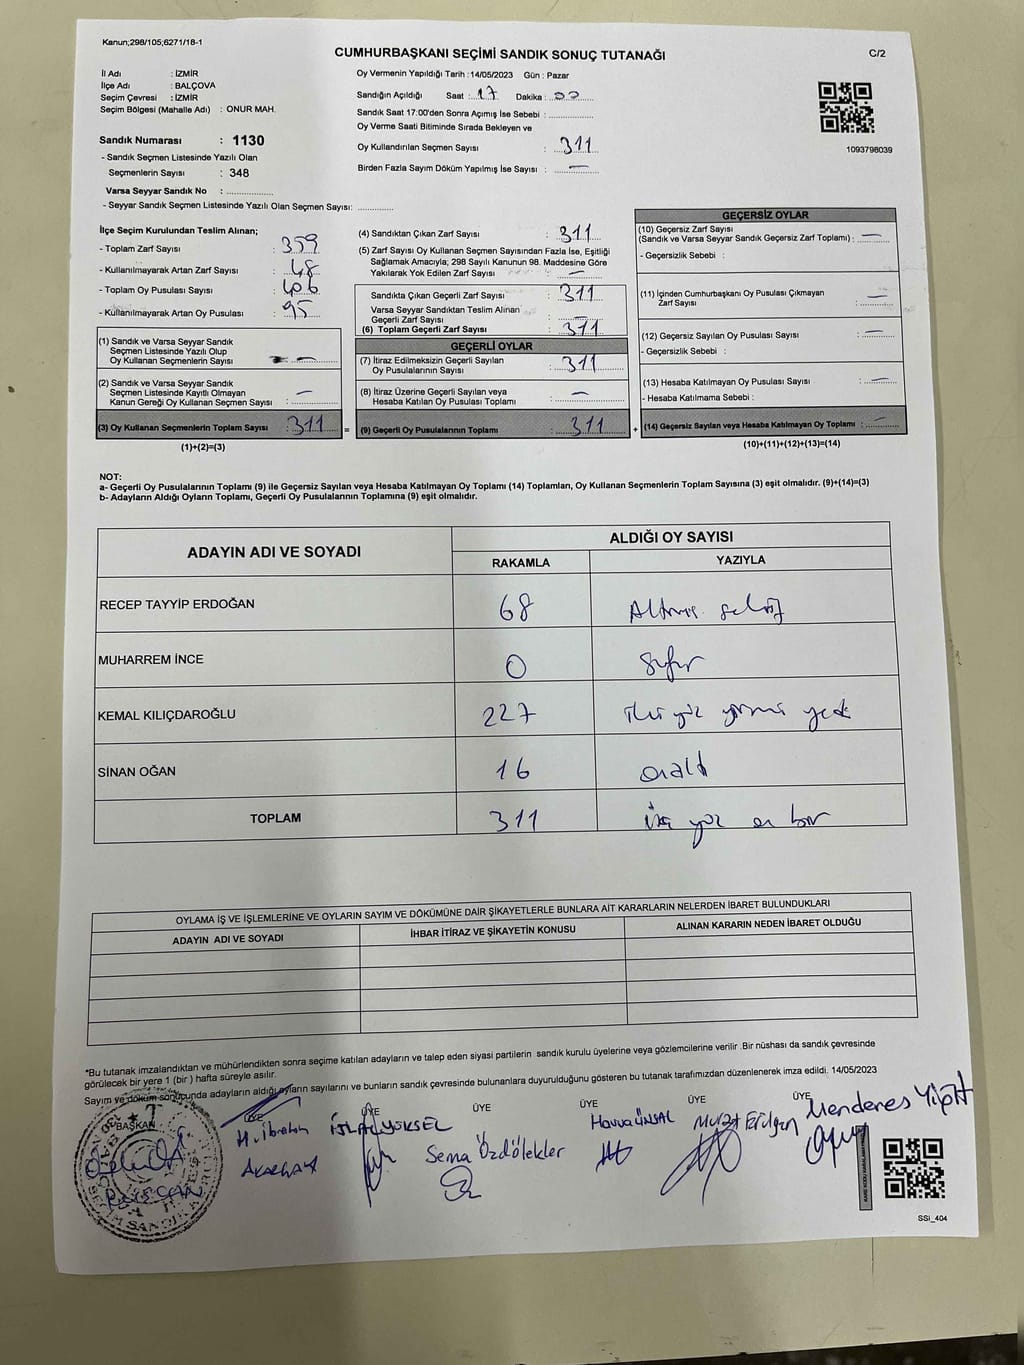 Kanun;298/105;6271/18-1
CUMHURBAŞKANI SEÇİMİ SANDIK SONUÇ TUTANAĞI
C/2
İl Adı : İZMİR
İlçe Adı : BALÇOVA
Seçim Çevresi : İZMİR
Seçim Bölgesi (Mahalle Adı) : ONUR MAH.
Sandık Numarası : 1130
- Sandık Seçmen Listesinde Yazılı Olan
Seçmenlerin Sayısı : 348
Varsa Seyyar Sandık No :
- Seyyar Sandık Seçmen Listesinde Yazılı Olan Seçmen Sayısı:
Oy Vermenin Yapıldığı Tarih :14/05/2023 Gün : Pazar
Sandığın Açıldığı Saat : 17 Dakika : 00
Sandık Saat 17:00'den Sonra Açımış İse Sebebi :
Oy Verme Saati Bitiminde Sırada Bekleyen ve
Oy Kullandırılan Seçmen Sayısı : 311
Birden Fazla Sayım Döküm Yapılmış İse Sayısı : —
1093798039
İlçe Seçim Kurulundan Teslim Alınan;
- Toplam Zarf Sayısı : 359
- Kullanılmayarak Artan Zarf Sayısı : 48
- Toplam Oy Pusulası Sayısı : 406
- Kullanılmayarak Artan Oy Pusulası : 95
(1) Sandık ve Varsa Seyyar Sandık
Seçmen Listesinde Yazılı Olup
Oy Kullanan Seçmenlerin Sayısı : —
(2) Sandık ve Varsa Seyyar Sandık
Seçmen Listesinde Kayıtlı Olmayan
Kanun Gereği Oy Kullanan Seçmen Sayısı : —
(3) Oy Kullanan Seçmenlerin Toplam Sayısı : 311
(1)+(2)=(3)
(4) Sandıktan Çıkan Zarf Sayısı : 311
(5) Zarf Sayısı Oy Kullanan Seçmen Sayısından Fazla İse, Eşitliği
Sağlamak Amacıyla; 298 Sayılı Kanunun 98. Maddesine Göre
Yakılarak Yok Edilen Zarf Sayısı : —
Sandıkta Çıkan Geçerli Zarf Sayısı : 311
Varsa Seyyar Sandıktan Teslim Alınan
Geçerli Zarf Sayısı : —
(6) Toplam Geçerli Zarf Sayısı : 311
GEÇERLİ OYLAR
(7) İtiraz Edilmeksizin Geçerli Sayılan
Oy Pusulalarının Sayısı : 311
(8) İtiraz Üzerine Geçerli Sayılan veya
Hesaba Katılan Oy Pusulası Toplamı : —
= (9) Geçerli Oy Pusulalarının Toplamı : 311
GEÇERSİZ OYLAR
(10) Geçersiz Zarf Sayısı
(Sandık ve Varsa Seyyar Sandık Geçersiz Zarf Toplamı) : —
- Geçersizlik Sebebi :
(11) İçinden Cumhurbaşkanı Oy Pusulası Çıkmayan
Zarf Sayısı : —
(12) Geçersiz Sayılan Oy Pusulası Sayısı : —
- Geçersizlik Sebebi :
(13) Hesaba Katılmayan Oy Pusulası Sayısı : —
- Hesaba Katılmama Sebebi :
+ (14) Geçersiz Sayılan veya Hesaba Katılmayan Oy Toplamı : —
(10)+(11)+(12)+(13)=(14)
NOT:
a- Geçerli Oy Pusulalarının Toplamı (9) ile Geçersiz Sayılan veya Hesaba Katılmayan Oy Toplamı (14) Toplamları, Oy Kullanan Seçmenlerin Toplam Sayısına (3) eşit olmalıdır. (9)+(14)=(3)
b- Adayların Aldığı Oyların Toplamı, Geçerli Oy Pusulalarının Toplamına (9) eşit olmalıdır.
ADAYIN ADI VE SOYADI
ALDIĞI OY SAYISI
RAKAMLA YAZIYLA
RECEP TAYYİP ERDOĞAN 68 Altmış sekiz
MUHARREM İNCE 0 Sıfır
KEMAL KILIÇDAROĞLU 227 iki yüz yirmi yedi
SİNAN OĞAN 16 onaltı
TOPLAM 311 üç yüz on bir
OYLAMA İŞ VE İŞLEMLERİNE VE OYLARIN SAYIM VE DÖKÜMÜNE DAİR ŞİKAYETLERLE BUNLARA AİT KARARLARIN NELERDEN İBARET BULUNDUKLARI
ADAYIN ADI VE SOYADI
İHBAR İTİRAZ VE ŞİKAYETİN KONUSU
ALINAN KARARIN NEDEN İBARET OLDUĞU
*Bu tutanak imzalandıktan ve mühürlendikten sonra seçime katılan adayların ve talep eden siyasi partilerin sandık kurulu üyelerine veya gözlemcilerine verilir .Bir nüshası da sandık çevresinde
görülecek bir yere 1 (bir ) hafta süreyle asılır.
Sayım ve döküm sonucunda adayların aldığı oyların sayılarını ve bunların sandık çevresinde bulunanlara duyurulduğunu gösteren bu tutanak tarafımızdan düzenlenerek imza edildi. 14/05/2023
BAŞKAN ÜYE ÜYE ÜYE ÜYE ÜYE ÜYE
H. İbrahim
YÜKSEL
Sema Özdölekler
Havva ÜNSAL
Murat
Menderes Yiğit
SSi_404